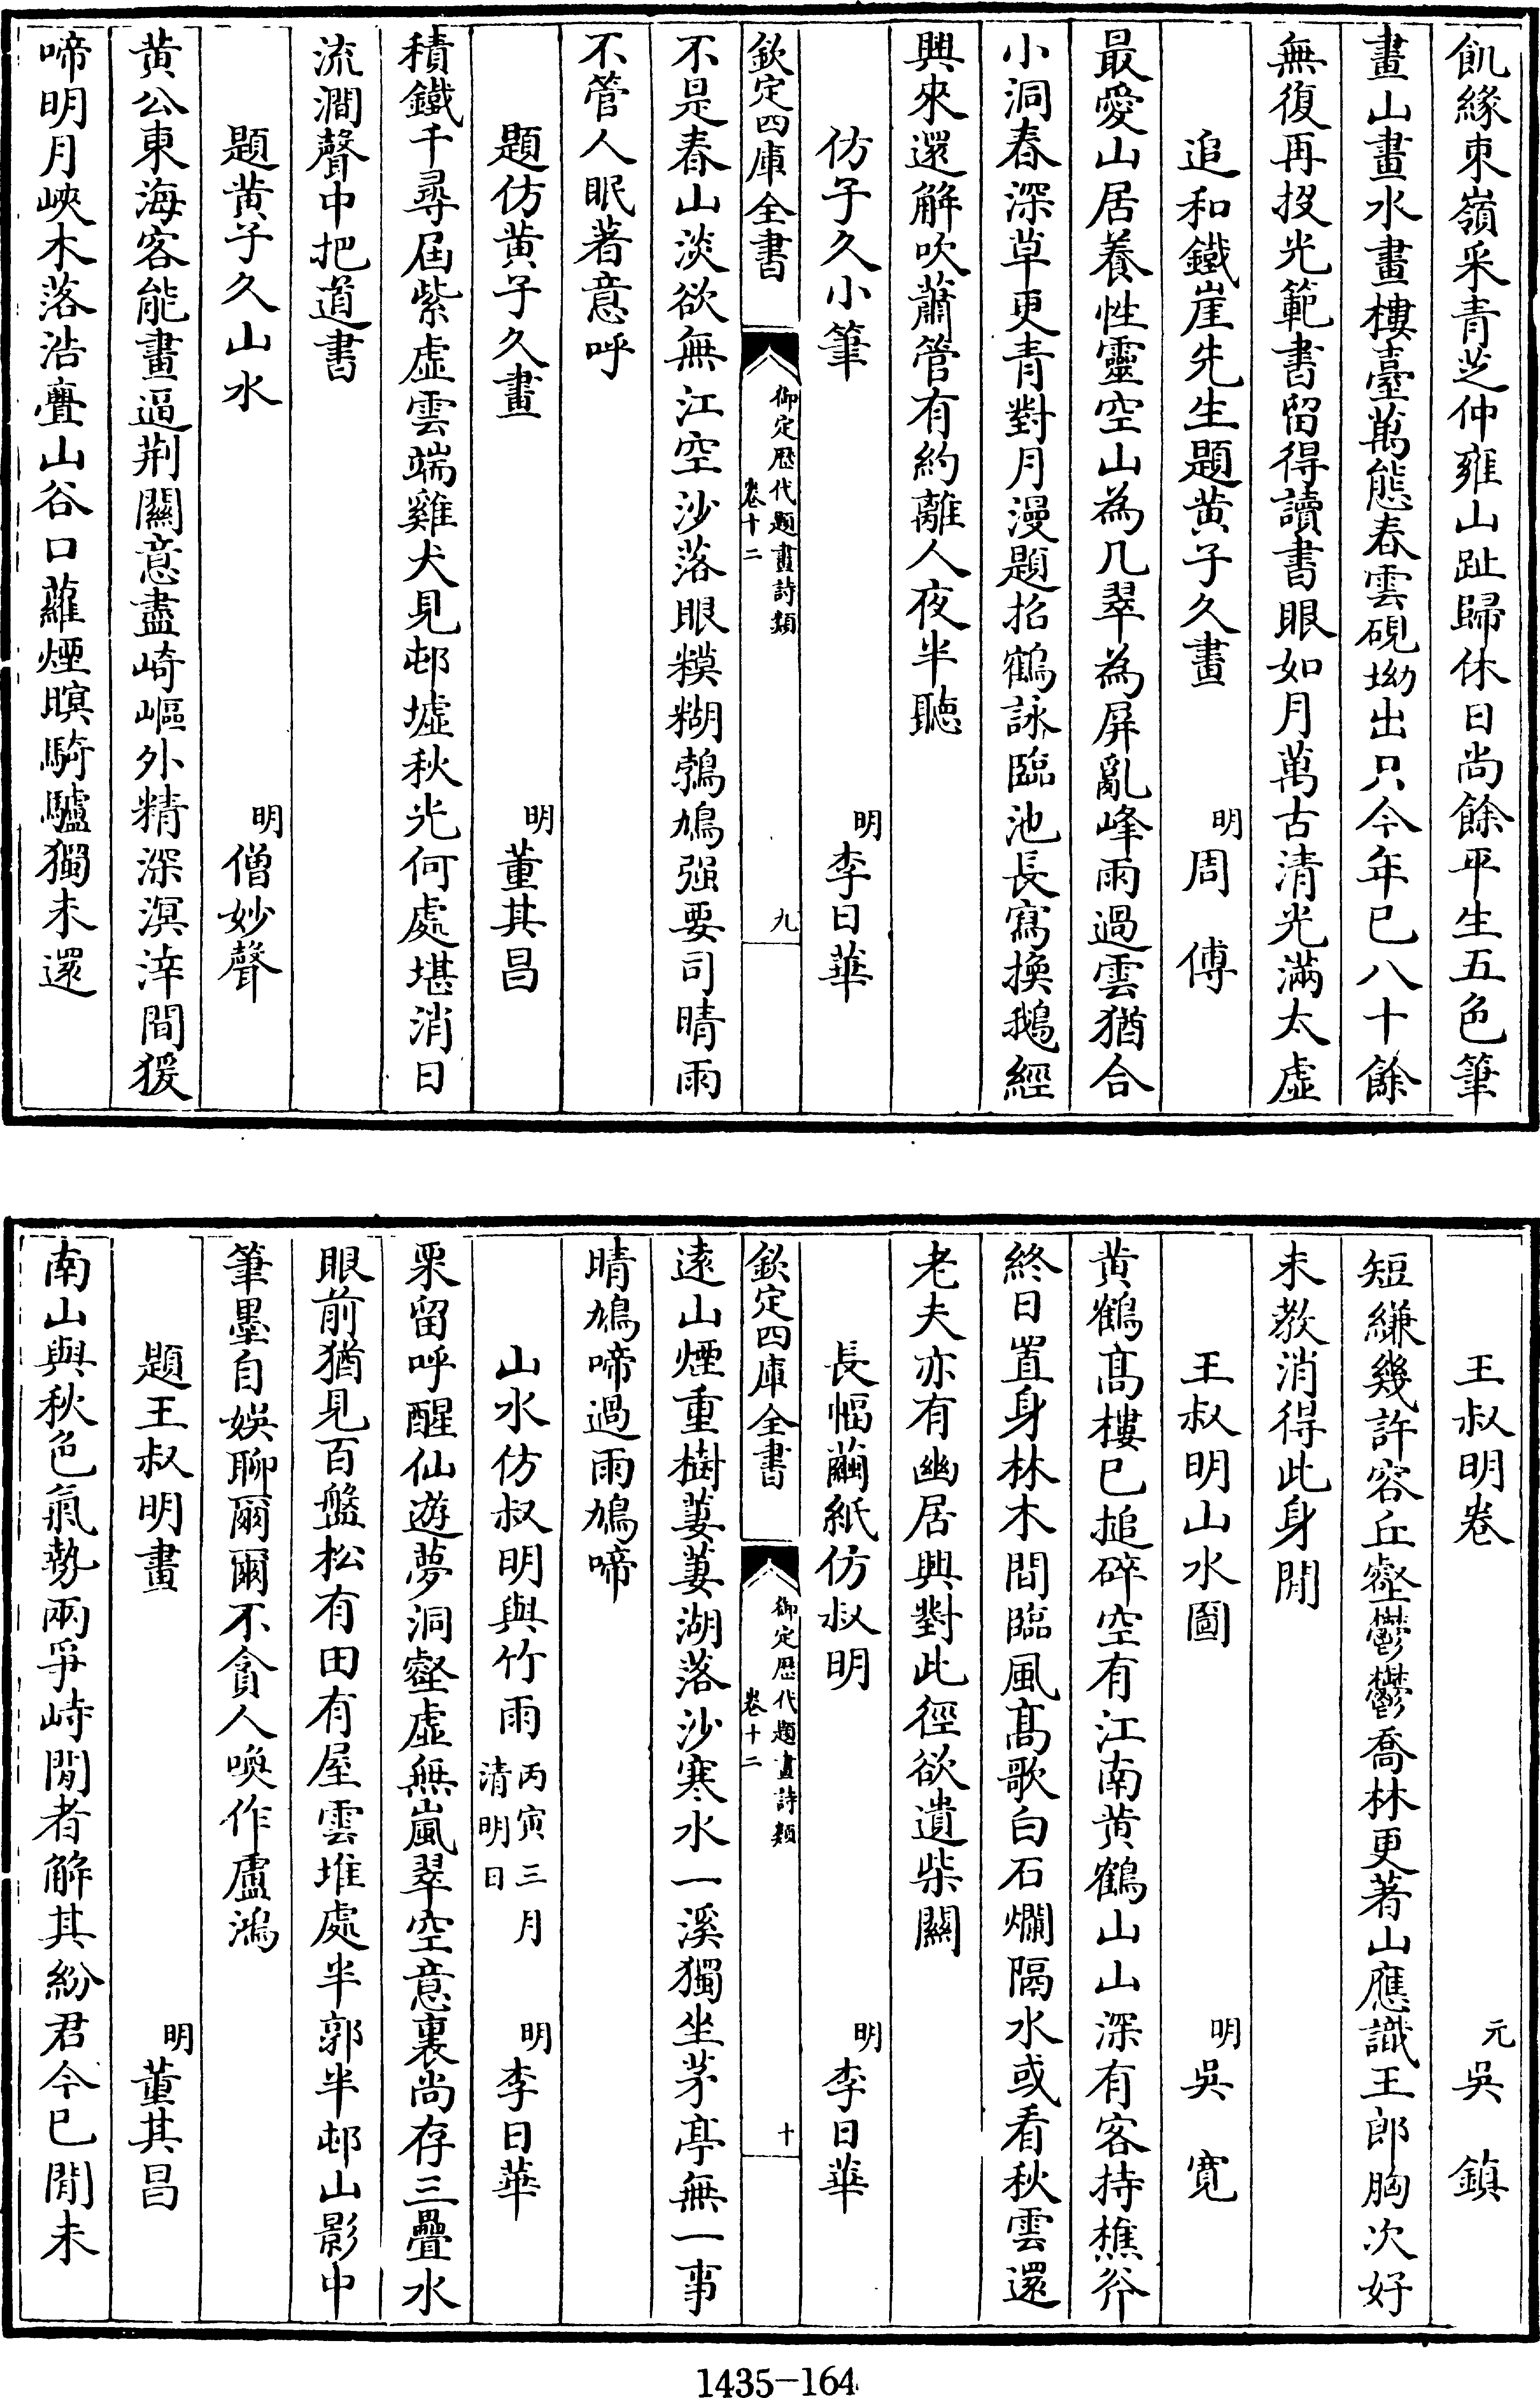 飢緣東嶺采青芝仲雍山趾歸休日尚餘平生五色筆
畫山畫水畫樓臺萬態春雲硯坳出只今年已八十餘
無復再投光範書留得讀書眼如月萬古清光滿太虛
追和鐵崖先生題黃子久畫 明周 傅
最愛山居養性靈空山為几翠為屏亂峰雨過雲猶合
小洞春深草更青對月漫題招鶴詠臨池長寫換鵝經
興來還解吹蕭管有約離人夜半聽
仿子久小筆 明李日華
欽定四庫全書 御定歷代題畫詩類 卷十二 九
不是春山淡欲無江空沙落眼糢糊鵓鳩强要司晴雨
不管人眠著意呼
題仿黃子久畫 明董其昌
積鐵千尋屆紫虛雲端雞犬見邨墟秋光何處堪消日
流澗聲中把道書
題黃子久山水 明僧妙聲
黃公東海客能畫逼荆關意盡崎嶇外精深溟涬間猨
啼明月峽木落浩亹山谷口蘿煙暝騎驢獨未還
王叔明卷 元吳 鎮
短縑幾許容丘壑鬱鬱喬林更著山應識王郎胸次好
未教消得此身閒
王叔明山水圖 明吳 寛
黃鶴髙樓已搥碎空有江南黃鶴山山深有客持樵斧
終日置身林木間臨風髙歌白石爛隔水或看秋雲還
老夫亦有幽居興對此徑欲遺柴關
長幅繭紙仿叔明 明李日華
欽定四庫全書 御定歷代題畫詩類 卷十二 十
遠山煙重樹萋萋湖落沙寒水一溪獨坐茅亭無一事
晴鳩啼過雨鳩啼
山水仿叔明與竹雨 丙寅三月清明日 明李日華
栗留呼醒仙遊夢洞壑虛無嵐翠空意裏尚存三疊水
眼前猶見百盤松有田有屋雲堆處半郭半邨山影中
筆墨自娛聊爾爾不貪人喚作盧鴻
題王叔明畫 明董其昌
南山與秋色氣勢兩爭峙閒者解其紛君今已閒未
1435-164